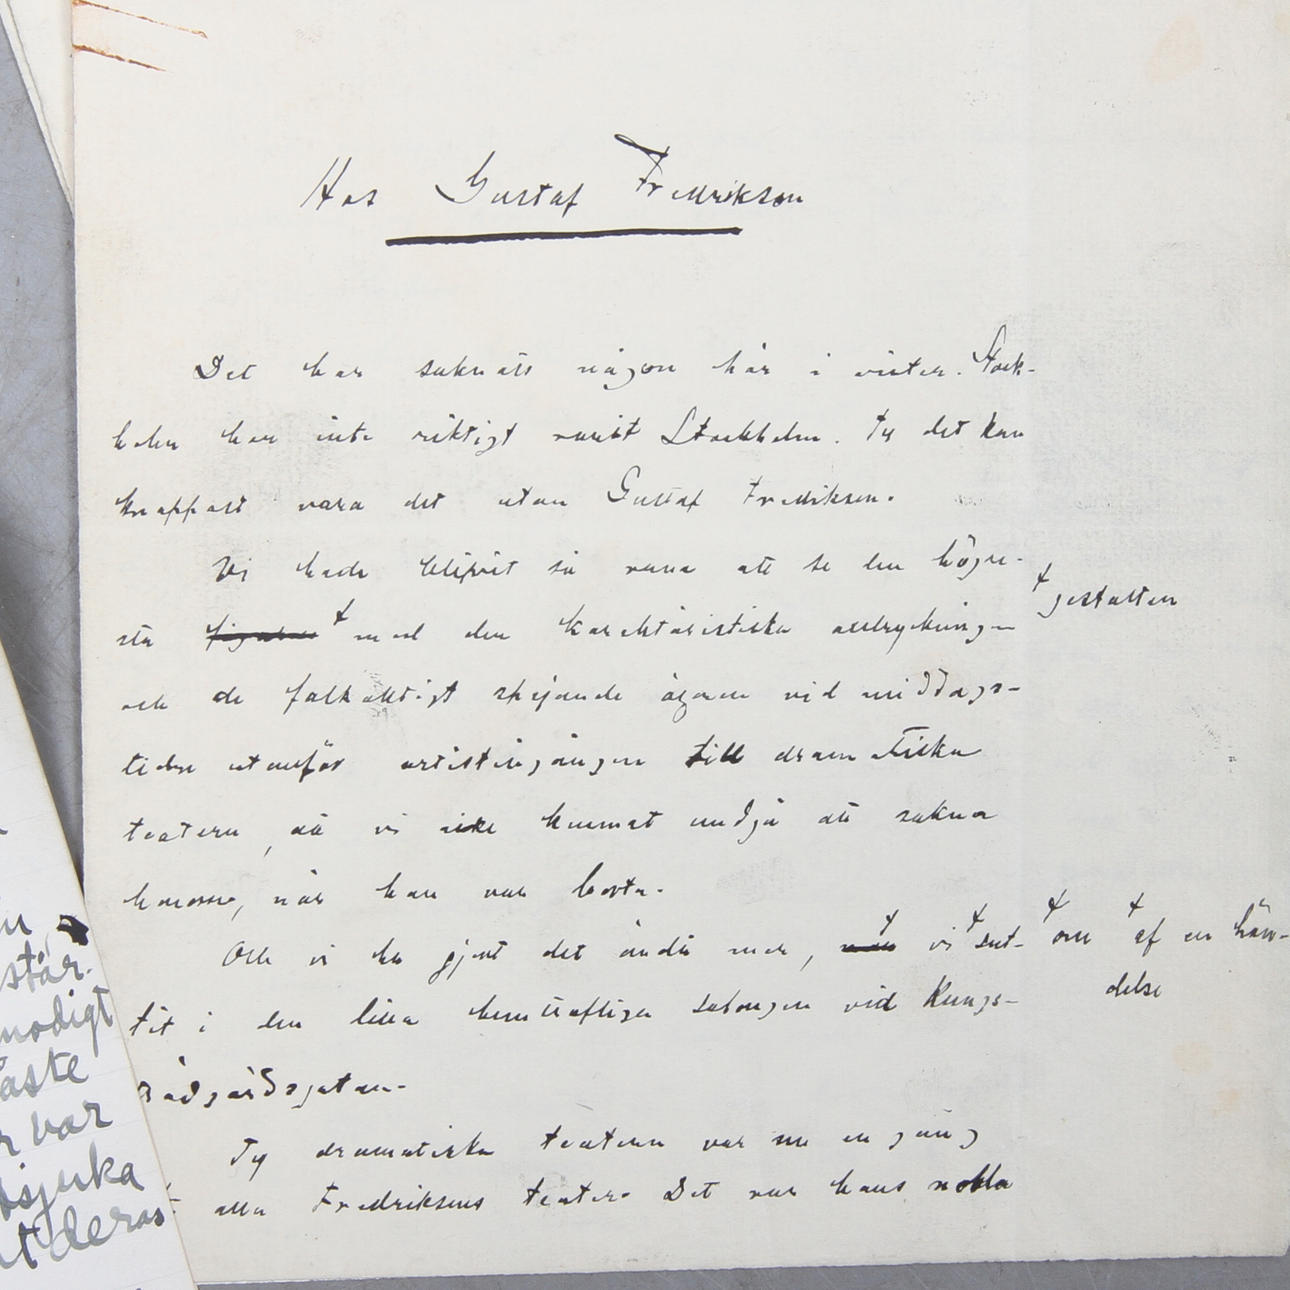 Hos Gustaf Fredrikson
Det har saknats någon här i vinter. Stock-
holm har inte riktigt varit Stockholm. Ty det kan
knappast vara det utan Gustaf Fredrikson.
Vi hade blifvit så vana att se den högre-
sta figuren + med den karaktäristiska
+ gestalten
och de falkaktigt spejande ögonen vid middags-
tiden utanför artistingången till dramatiska
teatern, då vi icke kunnat undgå att sakna
honom, när han var borta.
Och vi ha gjort det ändå mer, + vi + sut- + om + af en hän-
delse
tit i den lilla hemtrefliga salongen vid Kungs-
rädgårdsgatan.
Ty dramatiska teatern var nu en gång
alla Fredriksons teater. Det var hans nobla
in
står.
modigt
åste
r var
sjuka
t deras